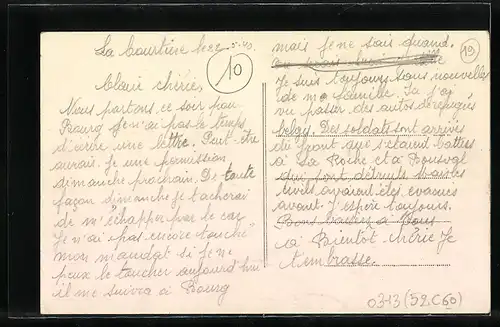 La Courtine le 22-5-40
Claire chérie,
Nous partons ce soir pour
Bourg je n'ai pas le temps
d'écrire une lettre. Peut-être
aurais-je une permission
dimanche prochain. De toute
façon dimanche je tacherai
de m'échapper par le car
Je n'ai pas encore touché
mon mandat si je ne
peux le toucher aujourd'hui
il me suivra à Bourg
10
mais je ne sais quand.
Je suis toujours sans nouvelles
de ma famille. Ici j'ai
vu passer des autos de réfugiés
belges. Des soldats sont arrivés
du front qui s'étaient battus
à La Roche et à
qui sont détruits
civils avaient été évacués
avant. J'espère toujours.
à Bientôt chérie Je
t'embrasse.
19
0313 (52C60)